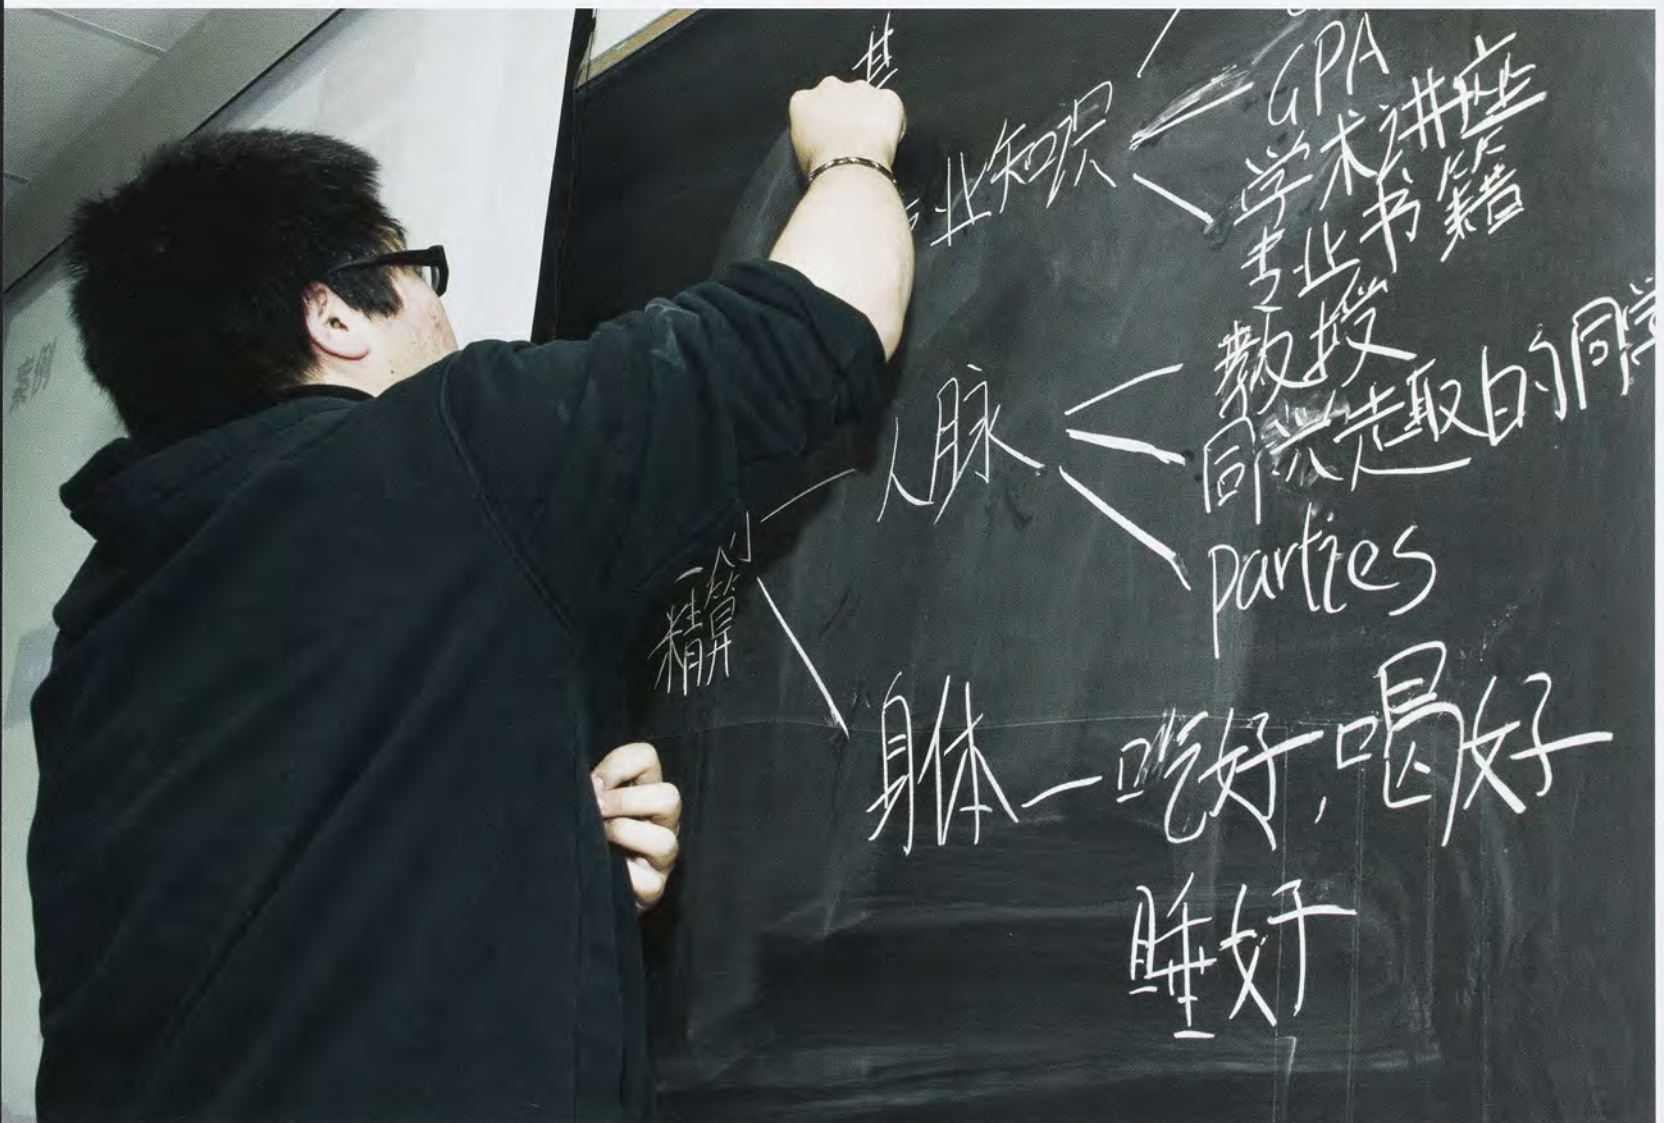 其
业知识
GPA
学术讲座
专业书籍
人脉
教授
同兴趣的同学
parties
一个
精算
身体—吃好,喝好
睡好